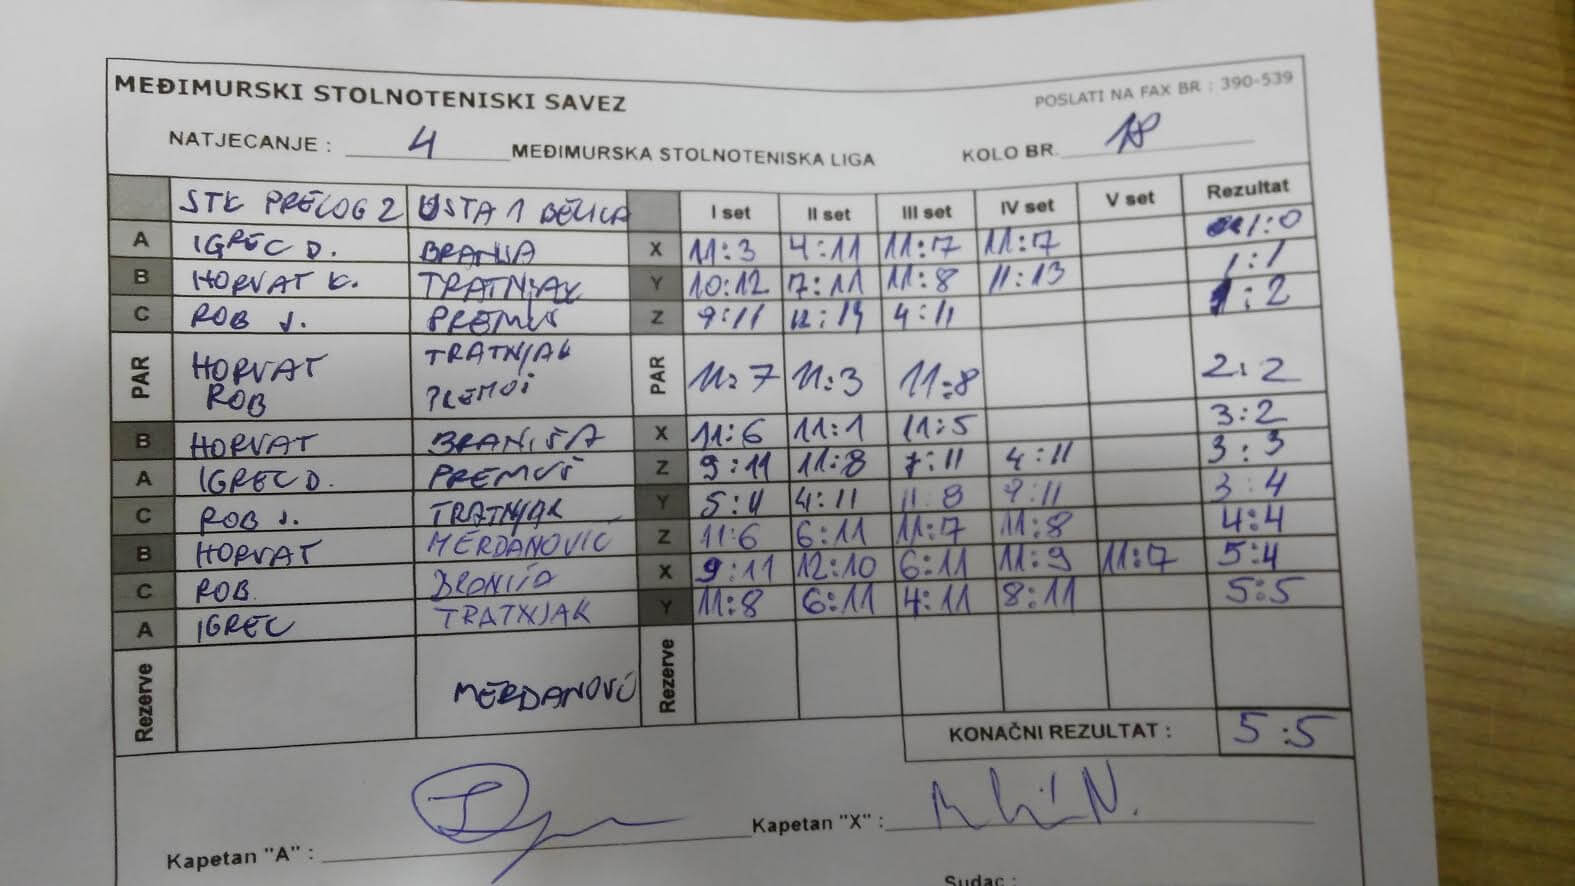 MEĐIMURSKI STOLNOTENISKI SAVEZ
POSLATI NA FAX BR : 390-539
NATJECANJE : 4 MEĐIMURSKA STOLNOTENISKA LIGA KOLO BR. 18
STK PRELOG 2 USTA 1 BELICA I set II set III set IV set V set Rezultat
A IGREC D. X 11:3 4:11 11:7 11:7 1:0
B HORVAT K. TRATNJAK Y 10:12 7:11 11:8 11:13 1:1
C ROB J. PREMUŠ Z 9:11 12:14 4:11 1:2
PAR HORVAT ROB TRATNJAK PREMUŠ PAR 11:7 11:3 11:8 2:2
B HORVAT BRANIŠA X 11:6 11:1 11:5 3:2
A IGREC D. PREMUŠ Z 9:11 11:8 7:11 4:11 3:3
C ROB J. TRATNJAK Y 5:11 4:11 11:8 9:11 3:4
B HORVAT MERDANOVIĆ Z 11:6 6:11 11:7 11:8 4:4
C ROB X 9:11 12:10 6:11 11:9 11:7 5:4
A IGREC TRATNJAK Y 11:8 6:11 4:11 8:11 5:5
Rezerve MERDANOVIĆ Rezerve
KONAČNI REZULTAT : 5:5
Kapetan "A" : Kapetan "X" :
Sudac :